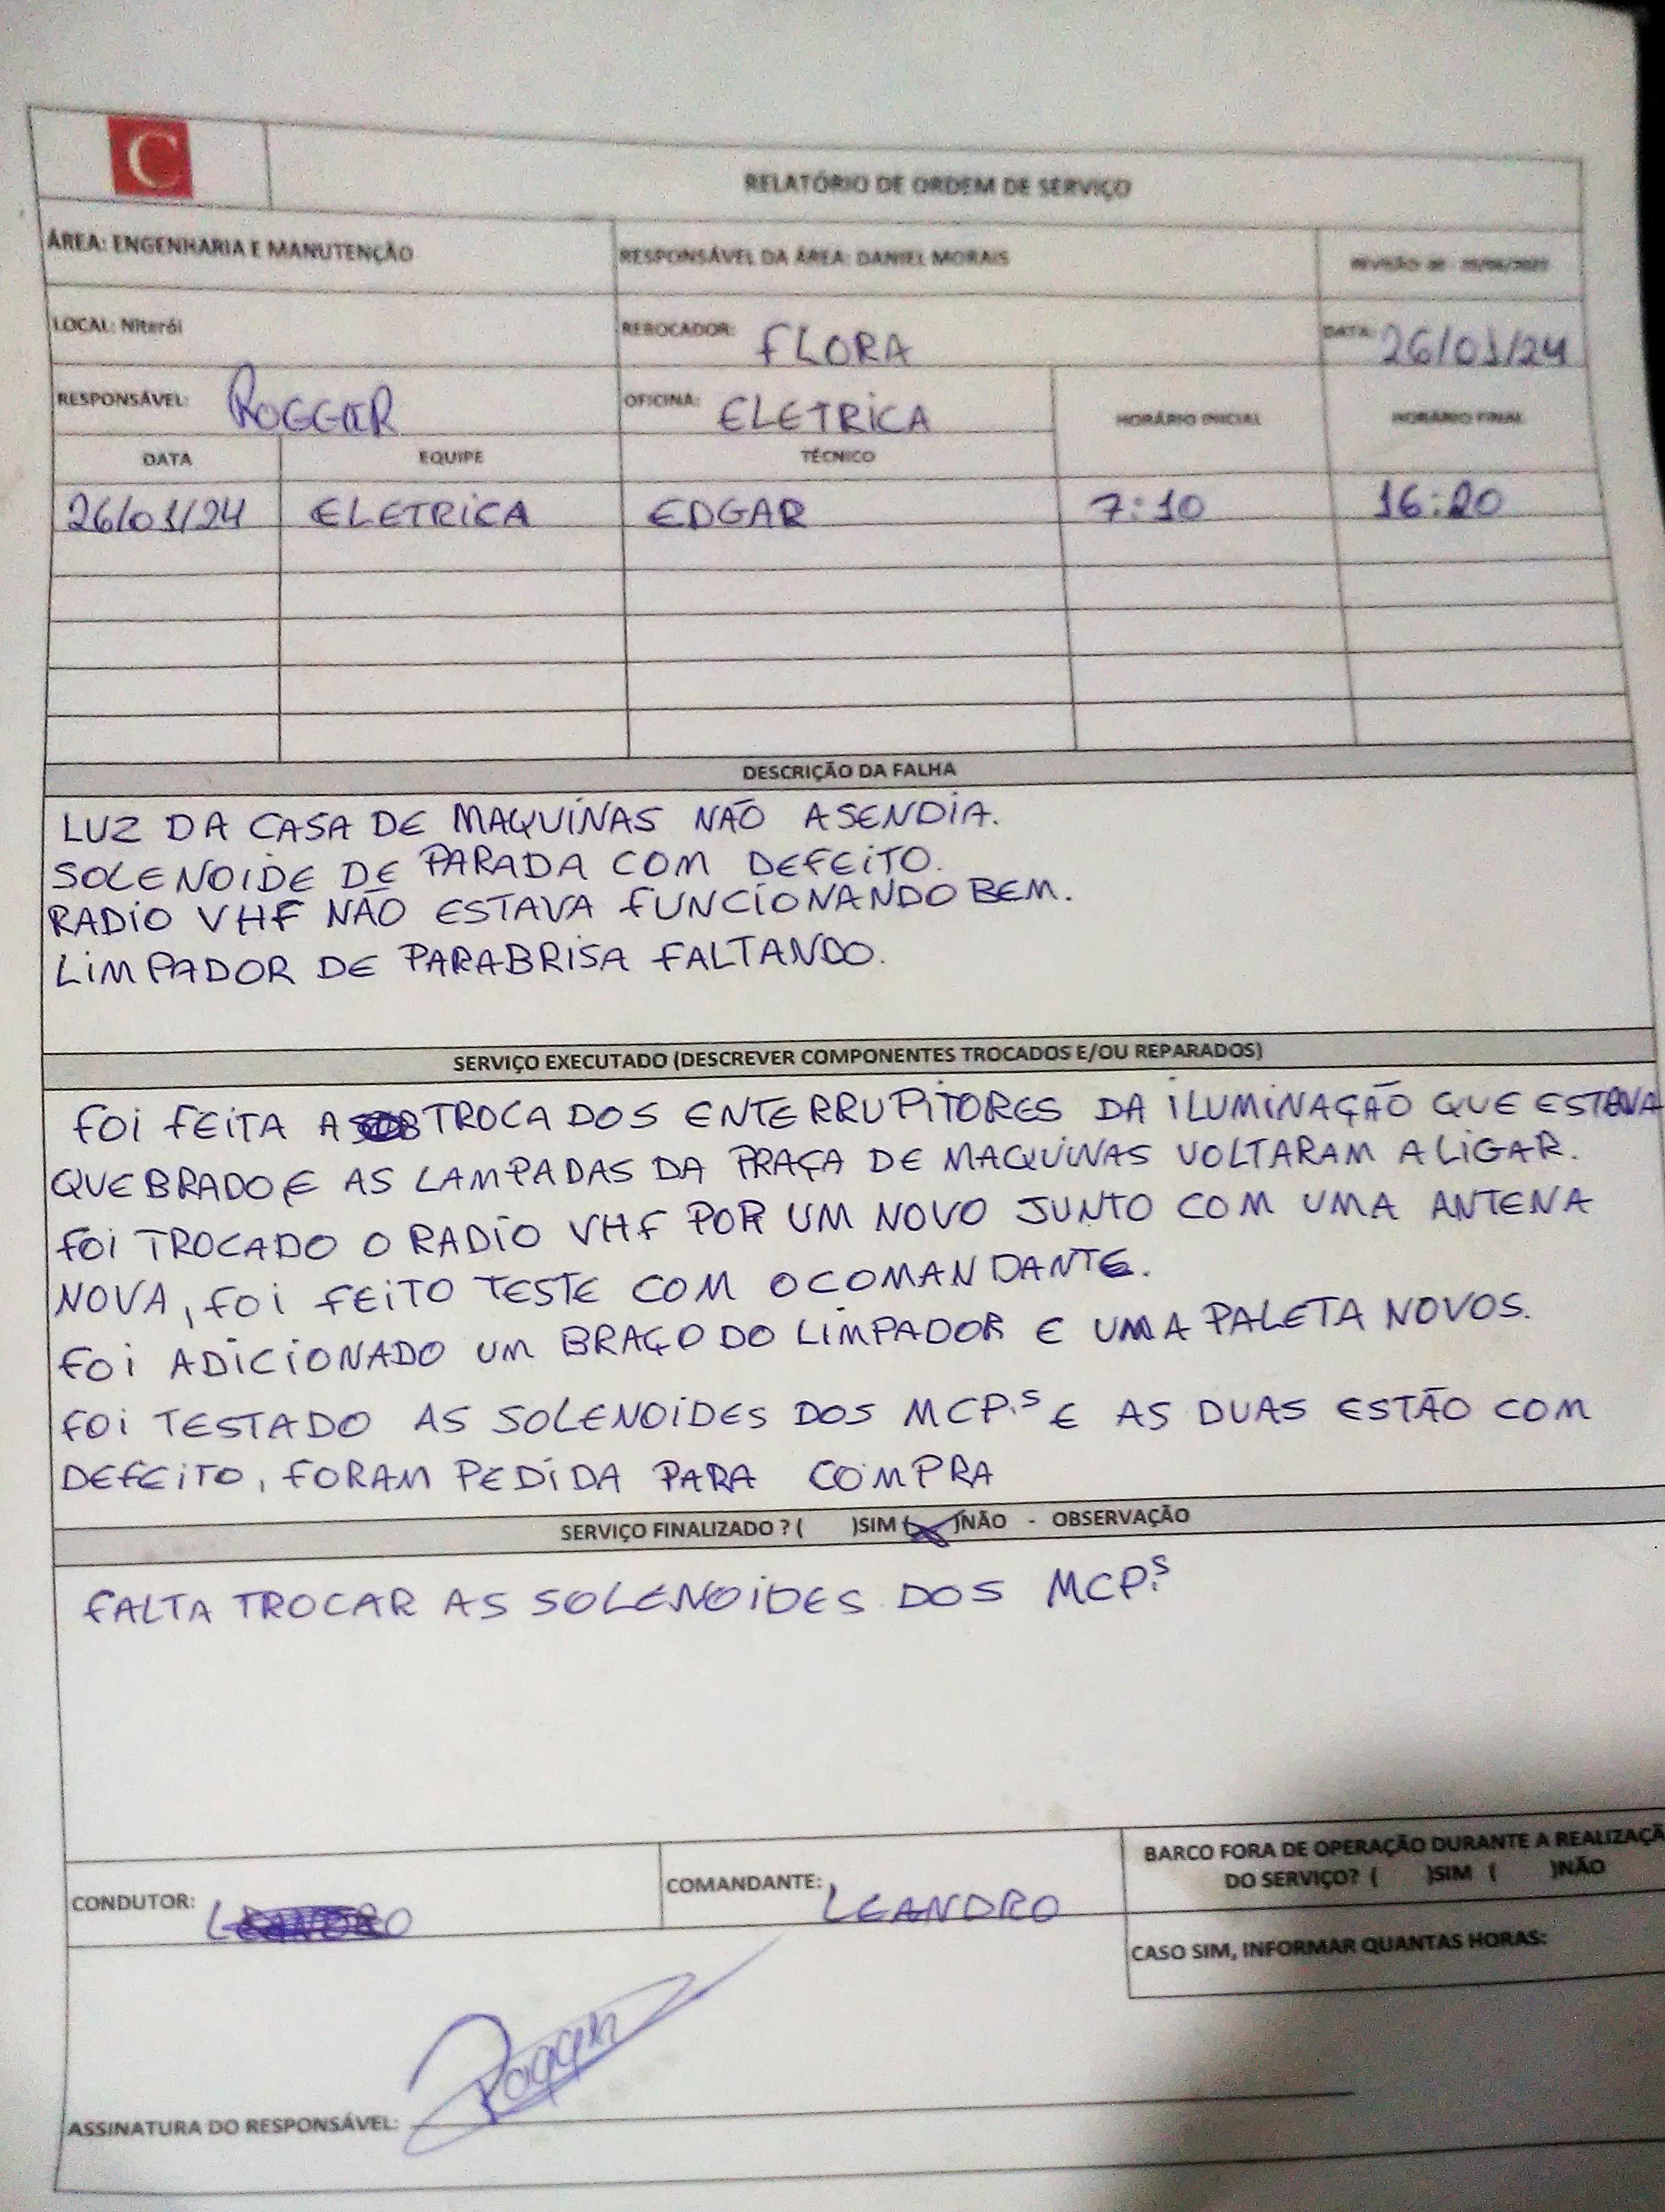 C
RELATÓRIO DE ORDEM DE SERVIÇO
ÁREA: ENGENHARIA E MANUTENÇÃO
RESPONSÁVEL DA ÁREA: DANIEL MORAIS
REVISÃO 00 -
LOCAL: Niterói
REBOCADOR: FLORA
DATA: 26/01/24
RESPONSÁVEL: ROGGER
OFICINA: ELETRICA
HORÁRIO INICIAL
HORÁRIO FINAL
DATA EQUIPE TÉCNICO
26/01/24 ELETRICA EDGAR 7:10 16:20
DESCRIÇÃO DA FALHA
LUZ DA CASA DE MAQUINAS NÃO ASENDIA.
SOLENOIDE DE PARADA COM DEFEITO.
RADIO VHF NÃO ESTAVA FUNCIONANDO BEM.
LIMPADOR DE PARABRISA FALTANDO.
SERVIÇO EXECUTADO (DESCREVER COMPONENTES TROCADOS E/OU REPARADOS)
FOI FEITA A TROCA DOS ENTERRUPITORES DA ILUMINAÇÃO QUE ESTAVA
QUEBRADO E AS LAMPADAS DA PRAÇA DE MAQUINAS VOLTARAM A LIGAR.
FOI TROCADO O RADIO VHF POR UM NOVO JUNTO COM UMA ANTENA
NOVA, FOI FEITO TESTE COM O COMANDANTE.
FOI ADICIONADO UM BRAÇO DO LIMPADOR E UMA PALETA NOVOS.
FOI TESTADO AS SOLENOIDES DOS MCP.S E AS DUAS ESTÃO COM
DEFEITO, FORAM PEDIDA PARA COMPRA
SERVIÇO FINALIZADO ? ( )SIM (X)NÃO - OBSERVAÇÃO
FALTA TROCAR AS SOLENOIDES DOS MCP.S
BARCO FORA DE OPERAÇÃO DURANTE A REALIZAÇÃ
DO SERVIÇO? ( )SIM ( )NÃO
CONDUTOR: LEANDRO
COMANDANTE: LEANDRO
CASO SIM, INFORMAR QUANTAS HORAS:
ASSINATURA DO RESPONSÁVEL: Rogger